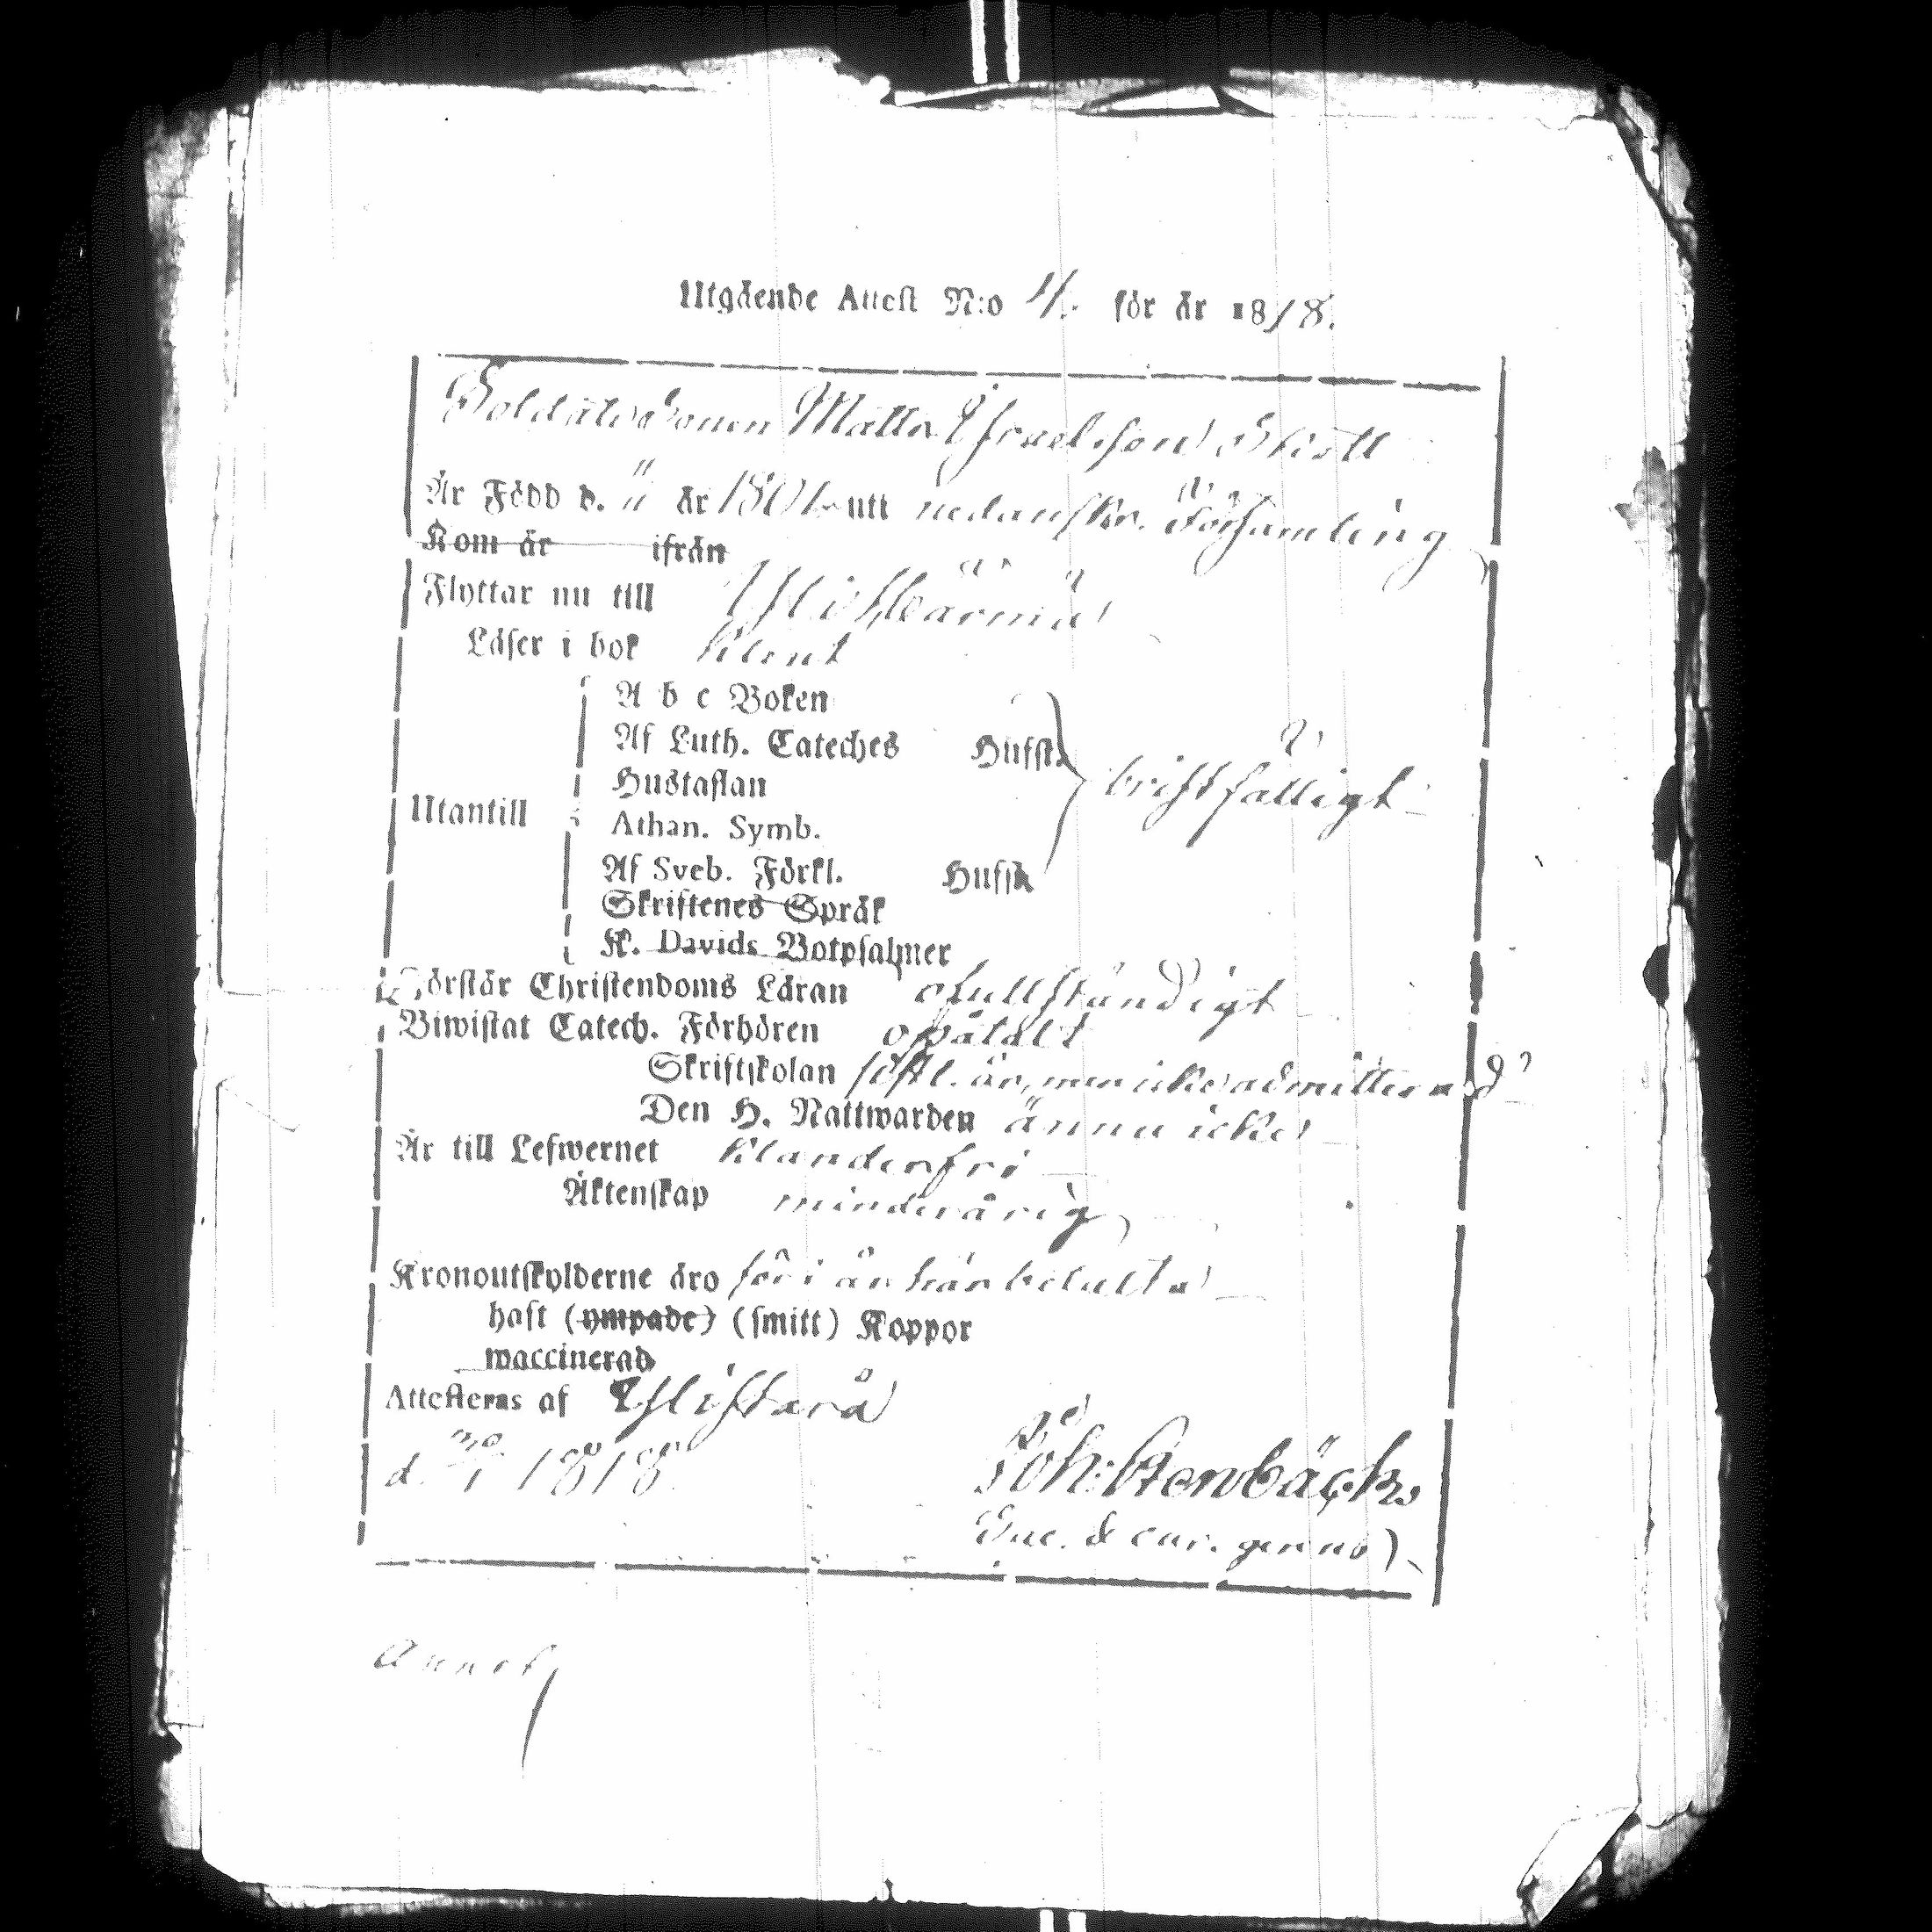 Utgående Attest N:o 4. för år 1818.
Soldatesonen Matts Israelsson Skott
Är Född d. " år 1801 utt nedanskr. Församling
Kom år ifrån
Flyttar nu till Ylistärmä
Läser i bok klent
A b c Boken
Af Luth. Cateches Hufst.
Hustaflan bristfälligt
Utantill Athan. Symb.
Af Sveb. Förkl. Hufst.
Skriftenes Språk
K. Davids Botpsalmer
Förstår Christendoms Läran ofullständigt
Biwistat Catech. Förhören opåtalt
Skriftskolan sistl. år, men icke admitterad
Den H. Nattwarden ännu icke
Är till Lefwernet klanderfri
Äktenskap minderårig
Kronoutskylderne äro för i år här betalta
haft (ympade) (smitt) Koppor
waccinerad
Attesteras af Ylistaro
d. 1818 Joh: Stenbäck
Sac. & cur. ger